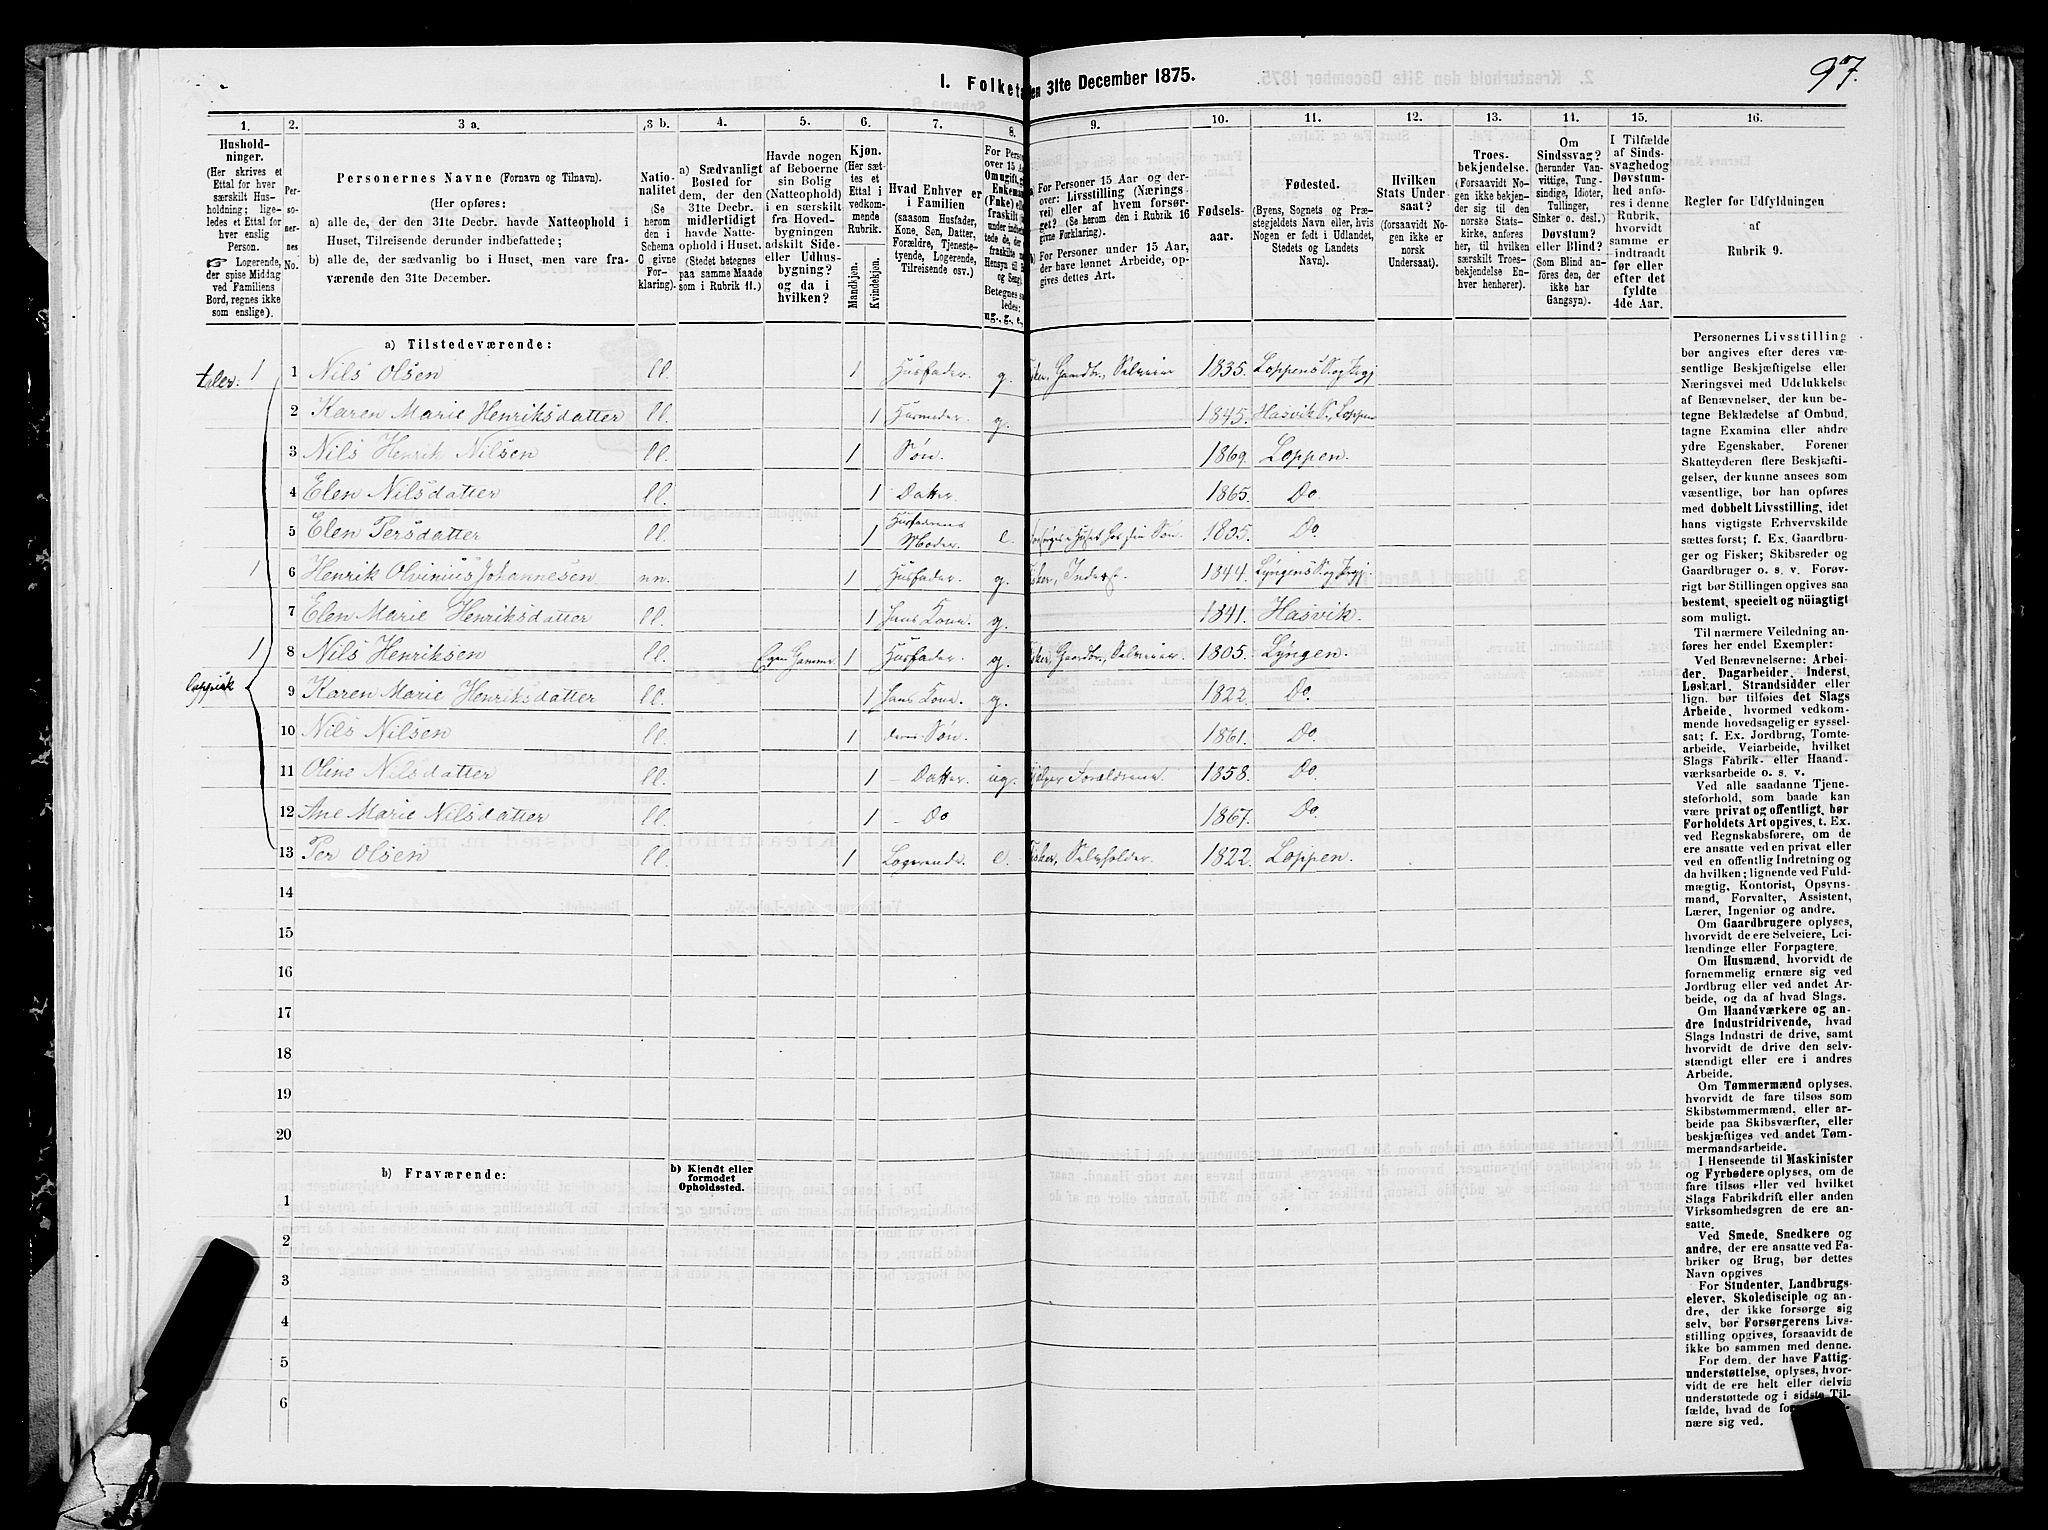 97.
I. Folketa
en 31te December 1875.
1. 2. 3 a. 3 b. 4. 5. 6. 7. 8. 9. 10. 11. 12. 13. 14. 15. 16.
Hushold-
ninger.
(Her skrives et
Ettal for hver
særskilt Hus-
holdning; lige-
ledes et Ettal
for hver enslig
Person.
☞ Logerende,
der spise Middag
ved Familiens
Bord, regnes ikke
som enslige).
Per-
so-
ner-
nes
No.
Personernes Navne (Fornavn og Tilnavn).
(Her opføres:
a) alle de, der den 31te Decbr. havde Natteophold i
Huset, Tilreisende derunder indbefattede;
b) alle de, der sædvanlig bo i Huset, men vare fra-
værende den 31te December.
Natio-
nalitet
(Se
herom
den i
Schema
C givne
For-
klaring).
a) Sædvanligt
Bosted for
dem, der den
31te Decbr.
midlertidigt
havde Natte-
ophold i Huset.
(Stedet betegnes
paa samme Maade
som i Rubrik 11.)
Havde nogen
af Beboerne
sin Bolig
(Natteophold)
i en særskilt
fra Hoved-
bygningen
adskilt Side-
eller Udhus-
bygning?
og da i
hvilken?
Kjøn.
(Her sæt-
tes et
Ettal i
vedkom-
mende
Rubrik.
Mandkjøn.
Kvindekjøn.
Hvad Enhver er
i Familien
(saasom Husfader,
Kone, Søn, Datter,
Forældre, Tjeneste-
tyende, Logerende,
Tilreisende osv.)
For Person
over 15 Aa
Om ugift, g
Enkema
(Fnke) elle
fraskilt
under indbe
tede de, der
fraskilte
Hensyn til B
og Seng).
Betegnes sa
ledes:
ug., g., e.,
a) For Personer 15 Aar og der-
over: Livsstilling (Nærings-
vei) eller af hvem forsør-
get? (Se herom den i Rubrik 16
givne Forklaring).
b) For Personer under 15 Aar,
der have lønnet Arbeide, op-
gives dettes Art.
Fødsels-
aar.
Fødested.
(Byens, Sognets og Præ-
stegjeldets Navn eller, hvis
Nogen er født i Udlandet,
Stedets og Landets
Navn).
Hvilken
Stats Under-
saat?
(forsaavidt No-
gen ikke er
norsk
Undersaat).
Troes-
bekjendelse.
(Forsaavidt No-
gen ikke bekjen-
der sig til den
norske Stats-
kirke, anføres
her, til hvilken
særskilt Troes-
bekjendelse En-
hver henhører).
Om
Sindssvag?
(herunder Van-
vittige, Tung-
sindige, Idioter,
Tullinger,
Sinker o. desl.)
Døvstum?
eller Blind?
(Som Blind an-
føres den, der
ikke har
Gangsyn).
I Tilfælde
af Sinds-
svaghed og
Døvstum-
hed anfø-
res i denne
Rubrik,
hvorvidt
samme er
indtraadt
før eller
efter det
fyldte
4de Aar.
Regler for Udfyldningen
af
Rubrik 9.
a) Tilstedeværende:
taler: 1 1 Nils Olsen ll. 1 Husfader. g. Fisker, Gaardbr., Selveier 1835. Loppens S. og Prgj
2 Karen Marie Henriksdatter ll. 1 Husmoder. g. 1845. Hasvik S., Loppen
3 Nils Henrik Nilsen ll. 1 Søn. 1869. Loppen.
4 Elen Nilsdatter ll. 1 Datter. 1865. Do.
5 Elen Persdatter ll. 1 Husfaderens Moder. e. Forsørges i Huset hos sin Søn. 1835. Do.
1 6 Henrik Olvinius Johannesen nn. 1 Husfader. g. Fisker, Inderst. 1844. Lyngens S. og Prgj.
7 Elen Marie Henriksdatter ll. 1 hans Kone. g. 1841. Hasvik.
1 8 Nils Henriksen ll. Egen Gamme 1 Husfader. g. Fisker, Gaardbr., Selveier. 1805. Lyngen.
lappisk 9 Karen Marie Henriksdatter ll. 1 hans Kone. g. 1822. Do.
10 Nils Nilsen ll. 1 deres Søn. 1861. Do.
11 Oline Nilsdatter ll. 1 – Datter. ug. Hjelper Forældrene 1858. Do.
12 Ane Marie Nilsdatter ll. 1 – Do 1867. Do.
13 Per Olsen ll. 1 Logerende. e. Fisker, Selvholder. 1822. Loppen.
14
15
16
17
18
19
20
b) Fraværende:
b) Kjendt eller
formodet
Opholdssted.
1
2
3
4
5
6
Personernes Livsstilling
bør angives efter deres væ-
sentlige Beskjæftigelse eller
Næringsvei med Udelukkelse
af Benævnelser, der kun be-
tegne Beklædelse af Ombud,
tagne Examina eller andre
ydre Egenskaber. Forener
Skatteyderen flere Beskjæfti-
gelser, der kunne ansees som
væsentlige, bør han opføres
med dobbelt Livsstilling, idet
hans vigtigste Erhvervskilde
sættes først; f. Ex. Gaardbru-
ger og Fisker; Skibsreder og
Gaardbruger o. s. v. Forøv-
rigt bør Stillingen opgives saa
bestemt, specielt og nöiagtigt
som muligt.
Til nærmere Veiledning an-
føres her endel Exempler:
Ved Benævnelserne: Arbei-
der, Dagarbeider, Inderst,
Løskarl, Strandsidder eller
lign. bør tilføies det Slags
Arbeide, hvormed vedkom-
mende hovedsagelig er syssel-
sat; f. Ex. Jordbrug, Tomte-
arbeide, Veiarbeide, hvilket
Slags Fabrik- eller Haand-
værksarbeide o. s. v.
Ved alle saadanne Tjene-
steforhold, som baade kan
være privat og offentligt, bør
Forholdets Art opgives, t. Ex.
ved Regnskabsførere, om de
ere ansatte ved en privat eller
ved en offentlig Indretning og
da hvilken; lignende ved Fuld-
mægtig, Kontorist, Opsyns-
mand, Forvalter, Assistent,
Lærer, Ingeniør og andre.
Om Gaardbrugere oplyses,
hvorvidt de ere Selveiere, Lei-
lændinge eller Forpagtere.
Om Husmænd, hvorvidt de
fornemmelig ernære sig ved
Jordbrug eller ved andet Ar-
beide, og da af hvad Slags.
Om Haandværkere og an-
dre Industridrivende, hvad
Slags Industri de drive, samt
hvorvidt de drive den selv-
stændigt eller ere i andres
Arbeide.
Om Tømmermænd oplyses,
hvorvidt de fare tilsøs som
Skibstømmermænd, eller ar-
beide paa Skibsværfter, eller
beskjæftiges ved andet Tøm-
mermandsarbeide.
I Henseende til Maskinister
og Fyrbødere oplyses, om de
fare tilsøs eller ved hvilket
Slags Fabrikdrift eller anden
Virksomhedsgren de ere an-
satte.
Ved Smede, Snedkere og
andre, der ere ansatte ved Fa-
briker og Brug, bør dettes
Navn opgives
For Studenter, Landbrugs-
elever, Skoledisciple og an-
dre, der ikke forsørge sig
selv, bør Forsørgerens Livs-
stilling opgives, forsaavidt de
ikke bo sammen med denne.
For dem, der have Fattig-
understøttelse, oplyses, hvor-
vidt de ere helt eller delvis
understøttede og i sidste Til-
fælde, hvad de for
nære sig ved.